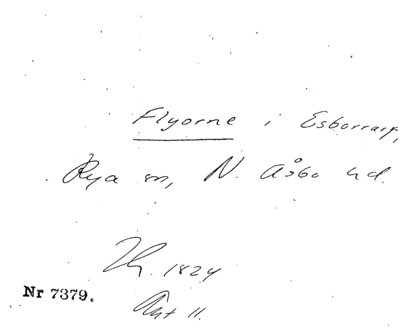 Flyorne i Esborrarp,
Rya sn, N. Åsbo hd.
1824
Nr 7379.
Akt 11.